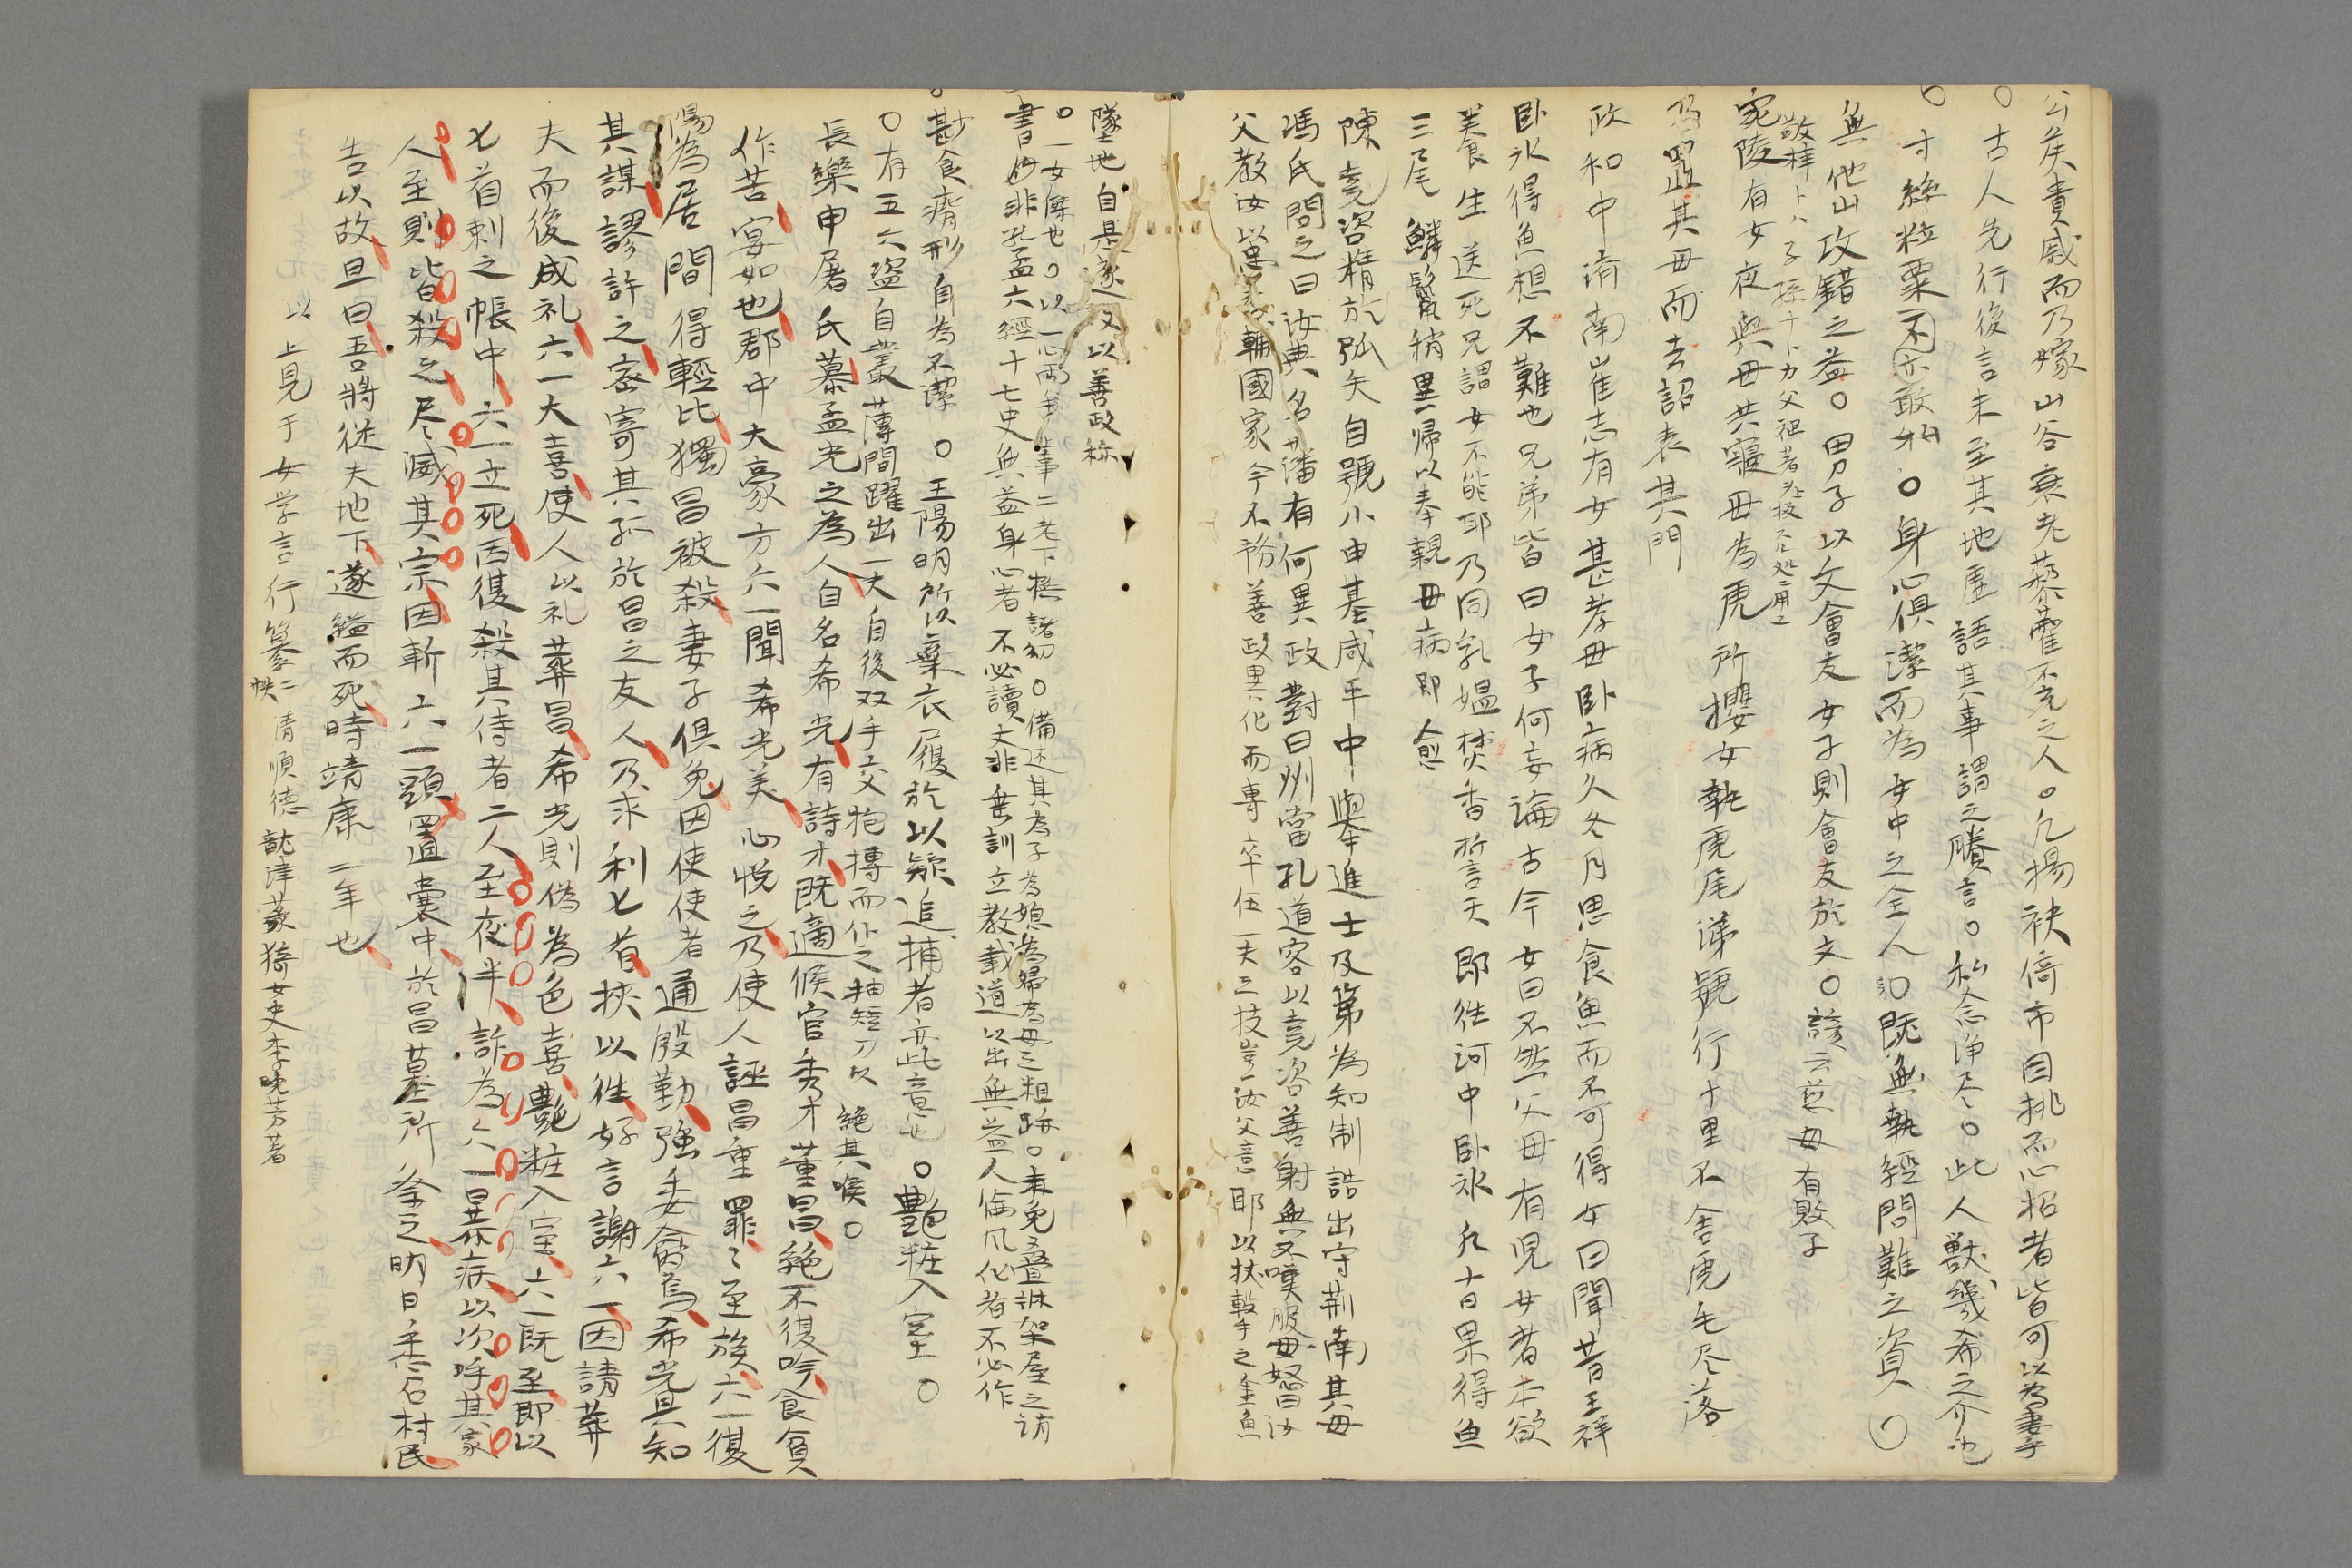 公矦責戚而乃嫁山谷衰老藜藿不充之人○凡揚袂倚市目挑而心招者皆可以為妻乎
○古人先行後言未至其地虚語其事謂之賸言○私念浄尽○此人獣幾希之介也
○寸絲粒粟不亦敢私○身心倶潔而為女中之全人○既無執経問難之資○
無他山攻錯之益○男子以文會友女子則會友於文○諺云慈母有敗子
敬梓卜ハ子孫十卜カ父祖著
家陵有女夜與母共寝母為虎所攫女執虎尾涕號行十里不舎虎毛尽落
乃置其母而去詔表其門
政和中済南崔志有女甚孝母卧病久冬月思食魚而不可得女曰聞昔王祥
卧氷得魚想不難也兄弟皆曰女子何妄論古今女曰不然父母有児女者本欲
養生送死兄謂女不能耶乃同乳媼焚香誓天即往河中卧氷凡十日果得魚
三尾鱗鬣稍異帰以奉親母病即愈
陳堯咨精於弧矢自號小由基咸平中舉進士及第為知制誥出守荊南其母
馮氏問之曰汝典名藩有何異政對曰州當孔道客以堯咨善射無不嘆服母怒曰汝
父教汝以忠孝輔國家今不務善政異化而専卒伍一夫之技豈汝父意耶以杖撃之金魚
墜地自是遂又以善政称
○一女傑也○以一心両手事二老下撫諸幼○備述其為子為媳為婦為母之粗跡○未免叠牀架屋之誚
○書妙非孔孟六經十七史無益身心者不必讀文非垂訓立教載道以出無益人倫風化者不必作
○甚食瘠形自為不潔○王陽明所以棄衣履於以疑追捕者亦此意也○艶粧入室○
○有五六盗自叢薄間躍出一夫自後双手交抱摶而仆之抽短刀以絶其喉○
長樂申屠氏慕孟光之為人自名希光有詩才既適候官秀才董昌絶不復吟食貧
作苦宴如也郡中大豪方六一聞希光美心悦之乃使人誣昌重罪〻至族六一復
陽為居間得輕比獨昌被殺妻子倶免因使使者通殷勤強委禽焉希光具知
其謀謬許之密寄其孤於昌之友人乃求利匕首挟以往好言謝六一因請葬
夫而後成礼六一大喜使人以礼葬昌希光則偽為色喜艶粧入室六一既至即以
匕首刺之帳中六一立死因復殺其侍者二人至夜半詐為六一暴疾以次呼其家
人至則皆殺之尽滅其宗因斬六一頭置囊中於昌墓所祭之明日悉召村民
告以故且曰吾將從夫地下遂縊而死時靖康二年也
以上見于女学言行纂二帙清順徳龍津蒙猗女史李晩芳著